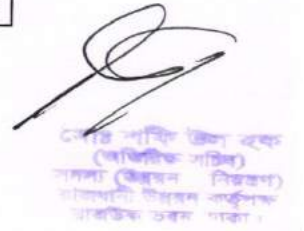 মোঃ শফি উল হক
(অতিরিক্ত সচিব)
সদস্য (উন্নয়ন নিয়ন্ত্রণ)
রাজধানী উন্নয়ন কর্তৃপক্ষ
রাজউক ভবন ঢাকা।